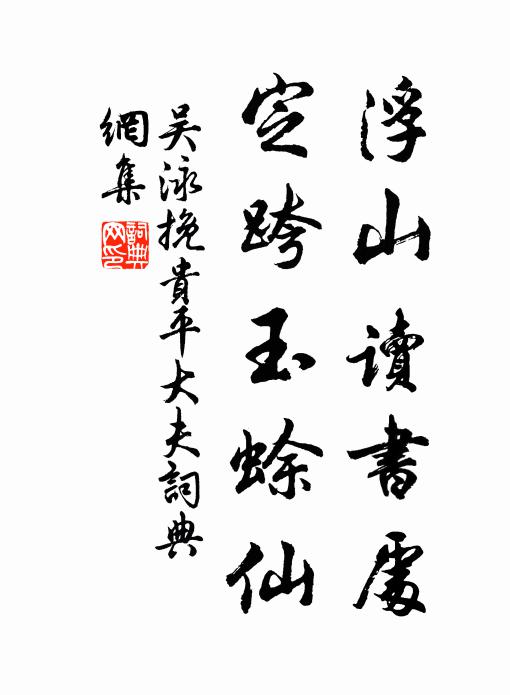 浮山讀書處
定跨玉蜍仙
吴泳挽貴平大夫詞典
網集
詞典
网印